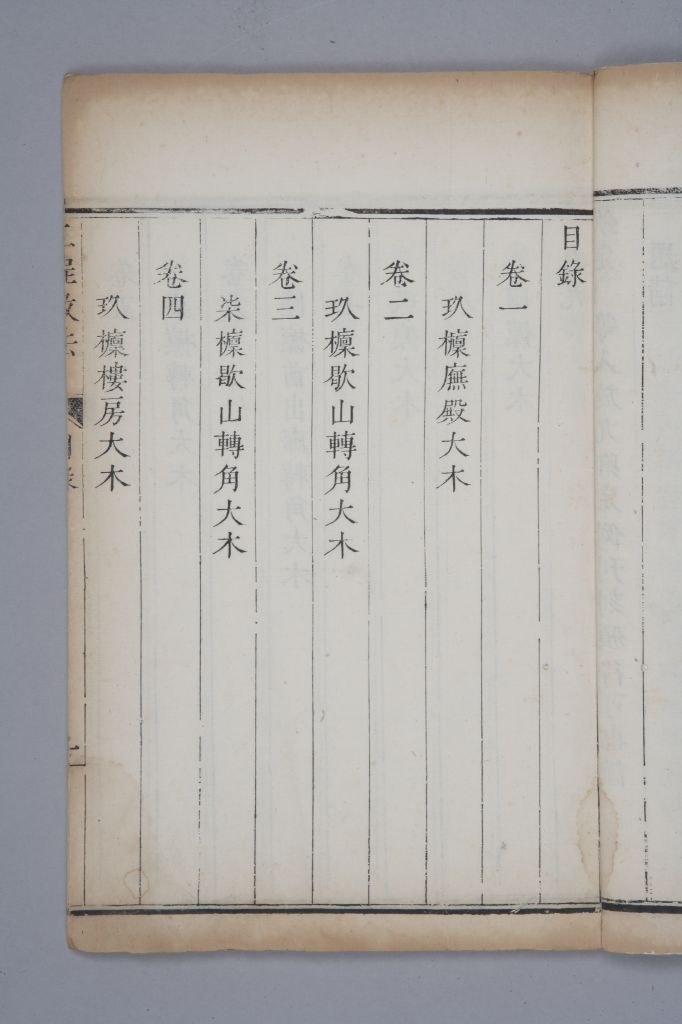 目錄
卷一
玖檁廡殿大木
卷二
玖檁歇山轉角大木
卷三
柒檁歇山轉角大木
卷四
玖檁樓房大木